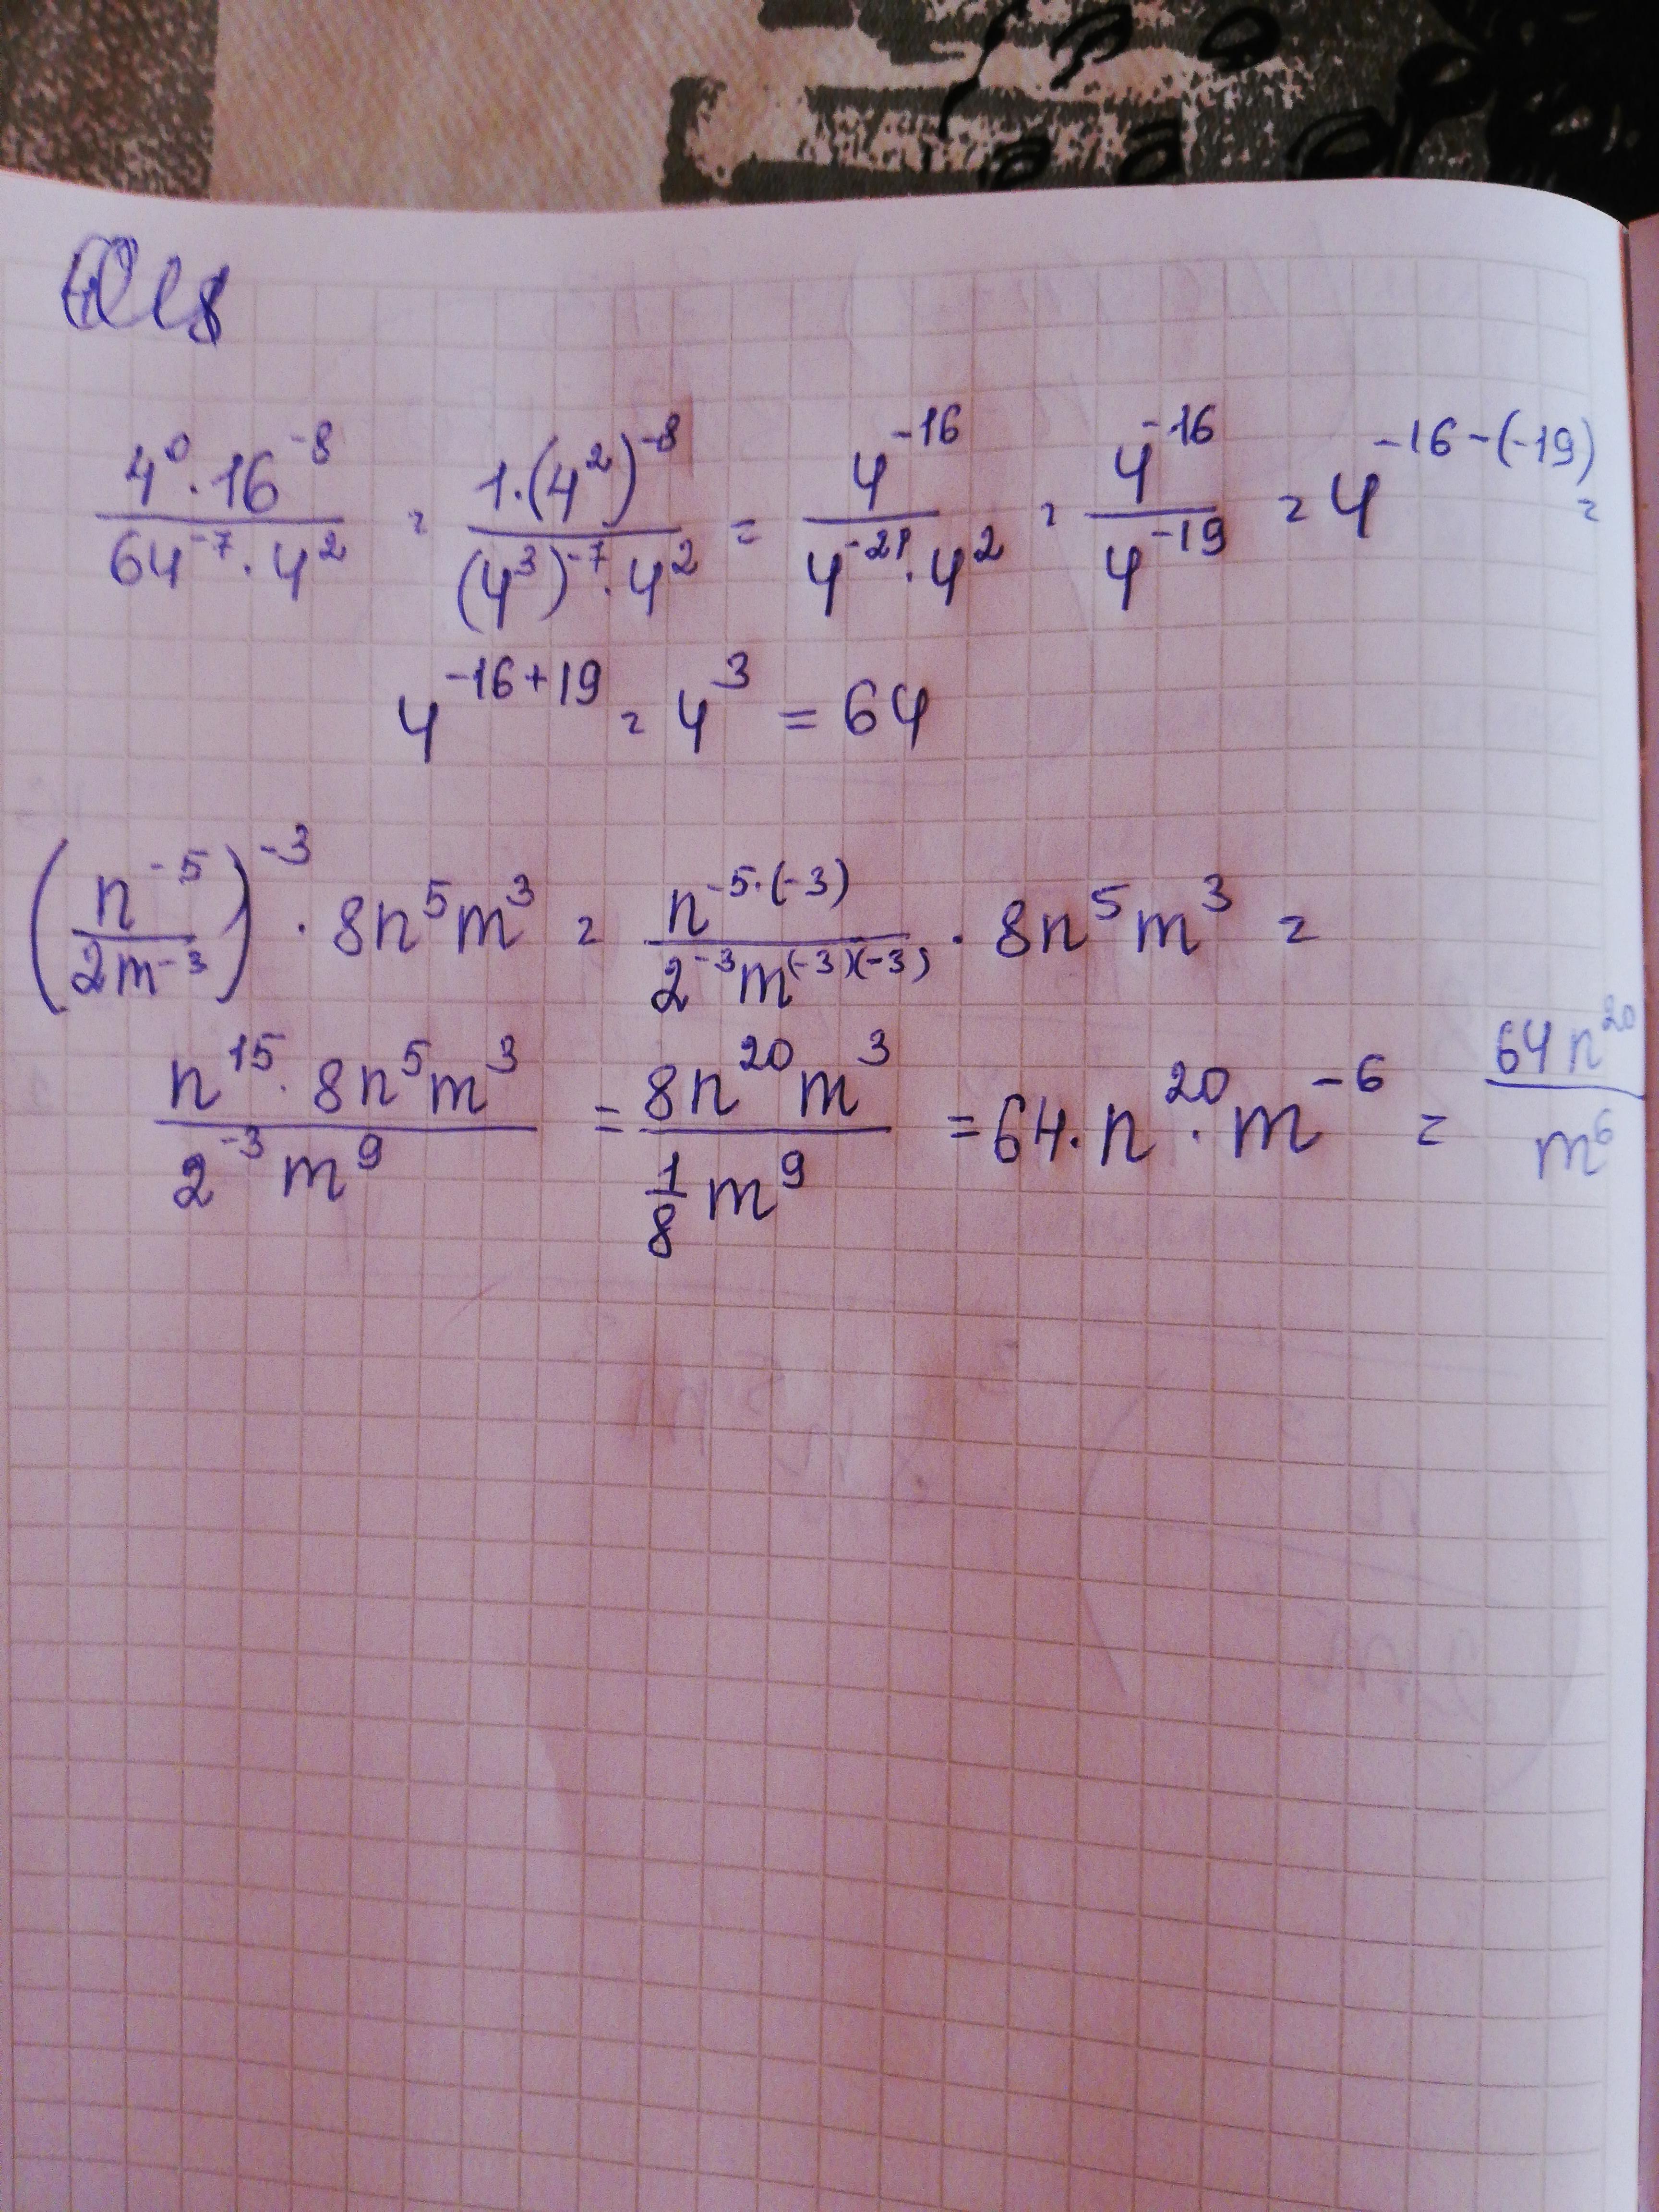 4⁰·16⁻⁸ / 64⁻⁷·4² = 1·(4²)⁻⁸ / (4³)⁻⁷·4² = 4⁻¹⁶ / 4⁻²¹·4² = 4⁻¹⁶ / 4⁻¹⁹ = 4⁻¹⁶⁻⁽⁻¹⁹⁾ =
4⁻¹⁶⁺¹⁹ = 4³ = 64
(n⁻⁵ / 2m⁻³)⁻³ · 8n⁵m³ = n⁻⁵·⁽⁻³⁾ / 2⁻³m⁽⁻³⁾⁽⁻³⁾ · 8n⁵m³ =
n¹⁵·8n⁵m³ / 2⁻³m⁹ = 8n²⁰m³ / (1/8)m⁹ = 64·n²⁰·m⁻⁶ = 64n²⁰ / m⁶